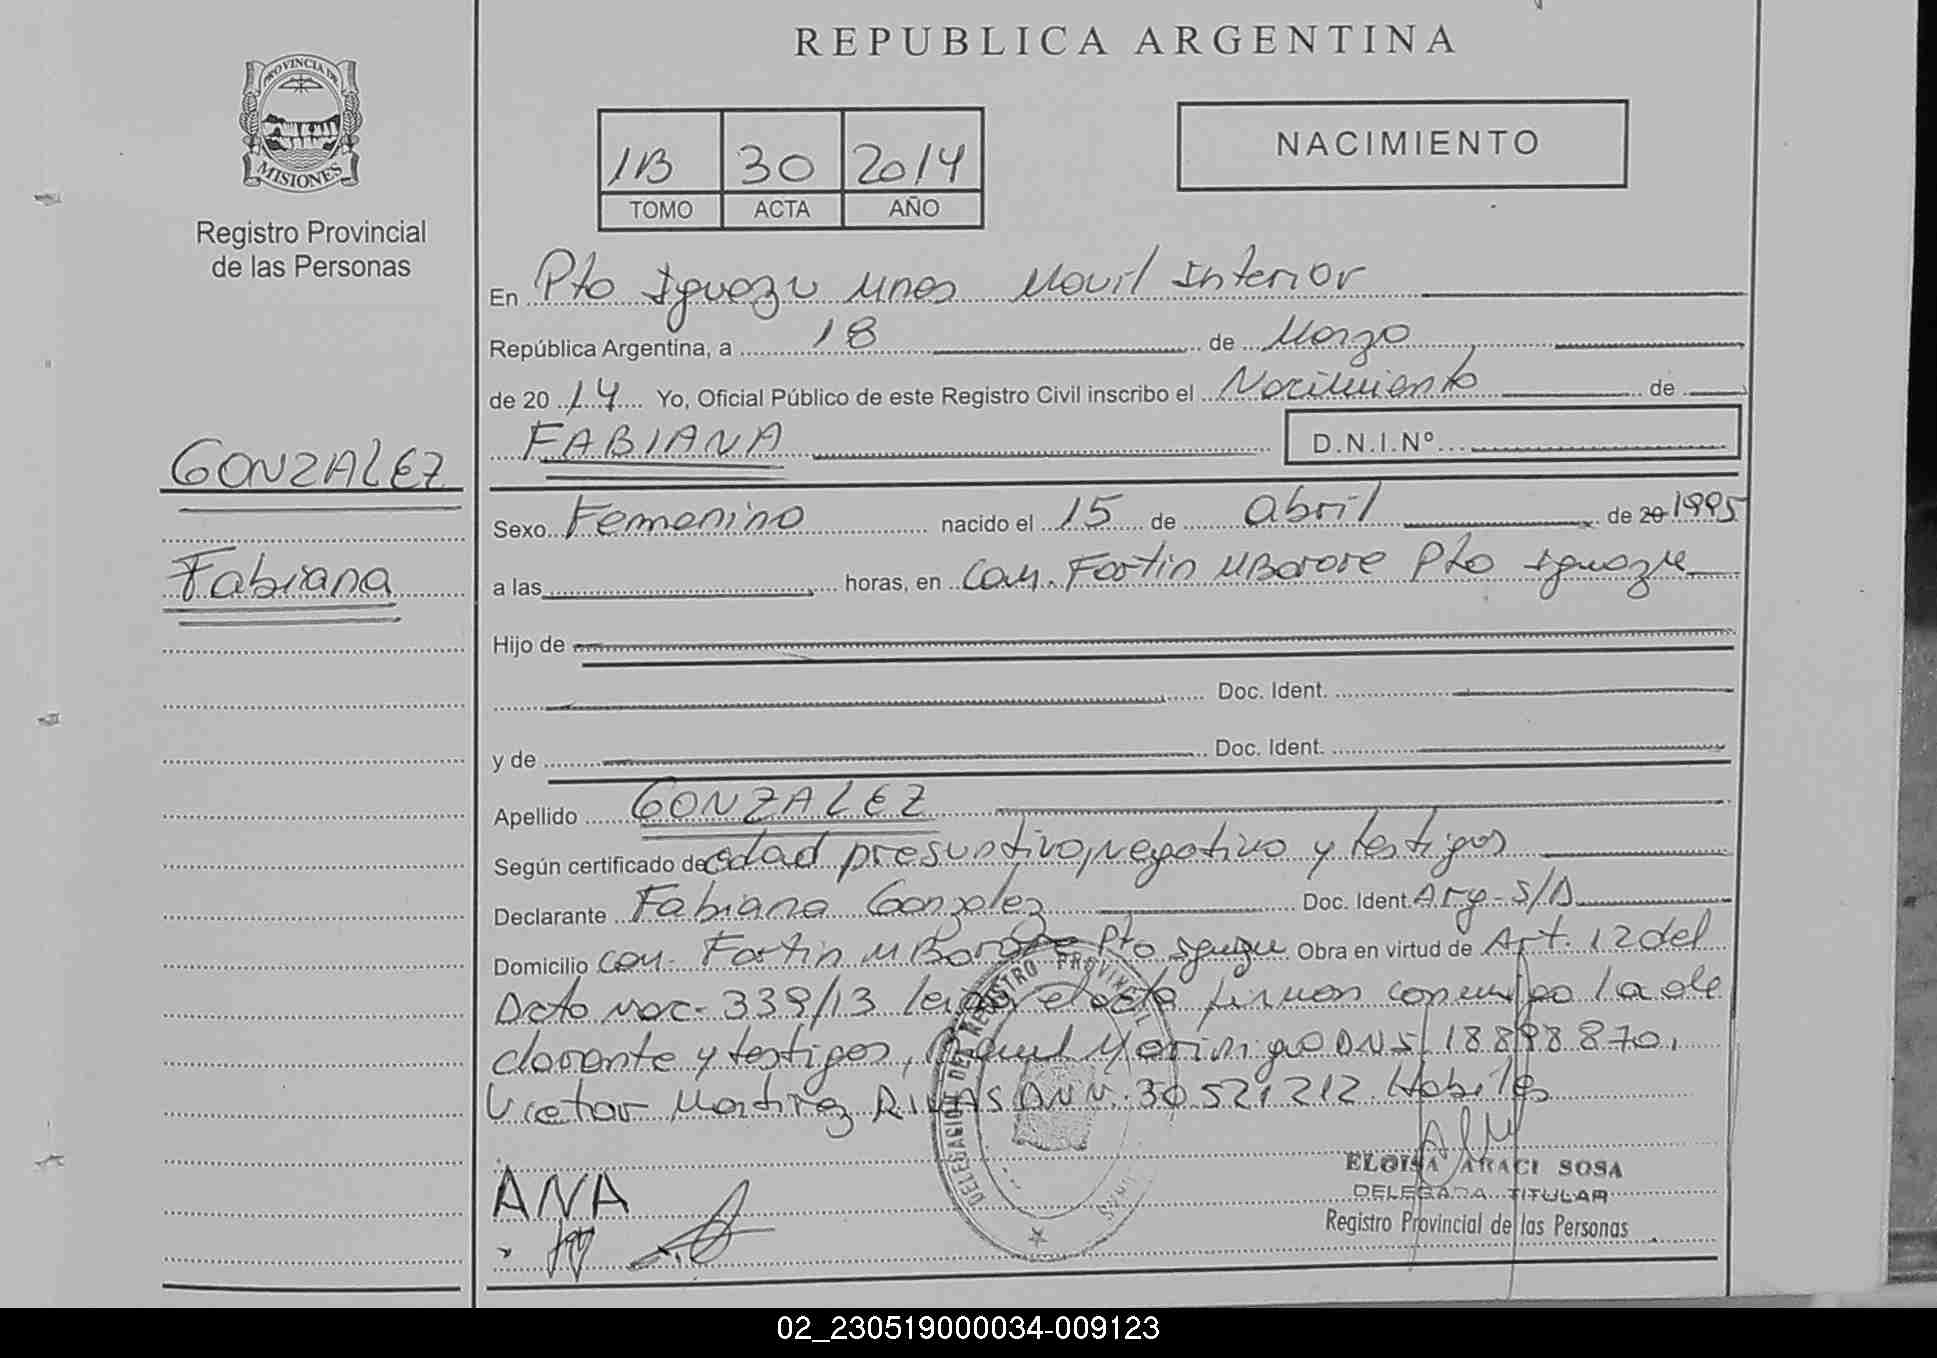 REPUBLICA ARGENTINA
PROVINCIA DE
MISIONES
Registro Provincial
de las Personas
1B 30 2014
TOMO ACTA AÑO
NACIMIENTO
En Pto Iguazu Mnes Movil Interior
República Argentina, a 18 de Marzo
de 2014 Yo, Oficial Público de este Registro Civil inscribo el Nacimiento de
FABIANA D.N.I.Nº
GONZALEZ
Fabiana
Sexo Femenino nacido el 15 de abril de 20 1995
a las horas, en Com. Fortin MBorore Pto Iguazu
Hijo de
Doc. Ident.
y de Doc. Ident.
Apellido GONZALEZ
Según certificado de edad presuntivo, negativo y testigos
Declarante Fabiana Gonzalez Doc. Ident. Arg. S/D
Domicilio com. Fortin MBorore Pto Iguazu Obra en virtud de Art. 12 del
Dcto Nac. 339/13 leida el acta firman conmigo la de
clarante y testigos, DNI 18898870,
Victor Martinez RIVAS DNI. 30.521.212. Habiles
DELEGACION DEL REGISTRO PROVINCIAL
ANA
ELOISA ARACI SOSA
DELEGADA TITULAR
Registro Provincial de las Personas
02_230519000034-009123